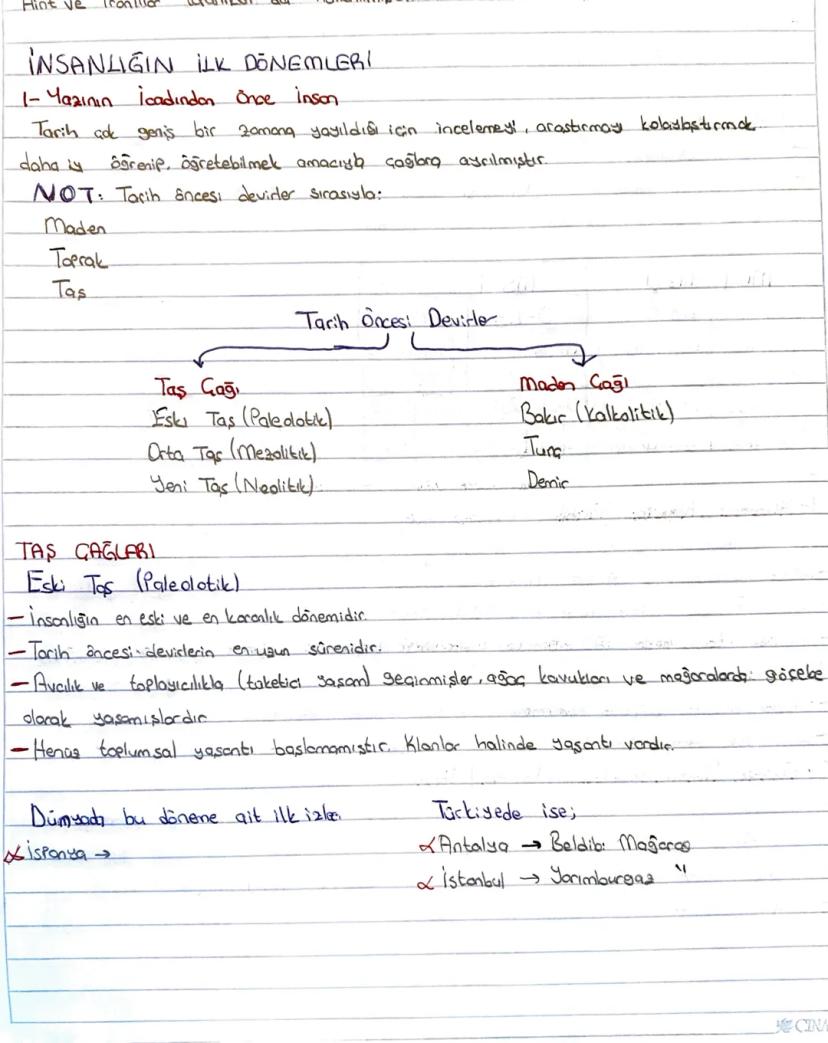 Hint ve
İNSANLIĞIN İLK DÖNEMLERİ
1- Yazının İcadından Önce İnson
Tarih çok geniş bir zamana yayıldığı için incelemeyi, araştırmayı kolaylaştırmak
daha iyi öğrenip, öğretebilmek amacıyla çağlara ayrılmıştır.
NOT: Tarih öncesi devirler sırasıyla:
Maden
Toprak
Taş
Tarih Öncesi Devirler
Taş Çağı
Maden Çağı
Eski Taş (Paleolotik)
Bakır (Kalkolitik)
Orta Taş (Mezolitik)
Tunç
Yeni Taş (Neolitik)
Demir
TAŞ ÇAĞLARI
Eski Taş (Paleolotik)
- İnsanlığın en eski ve en karanlık dönemidir.
- Tarih öncesi devirlerin en uzun sürenidir.
- Avcılık ve toplayıcılıkla (tüketici yaşam) geçinmişler, ağaç kavukları ve mağaralarda göçebe
olarak yaşamışlardır
- Henüz toplumsal yaşantı başlamamıştır. Klanlar halinde yaşantı vardır.
Dünyada bu döneme ait ilk izler
Türkiyede ise;
İspanya →
Antalya → Beldibi Mağarası
İstanbul → Yarımburgaz "